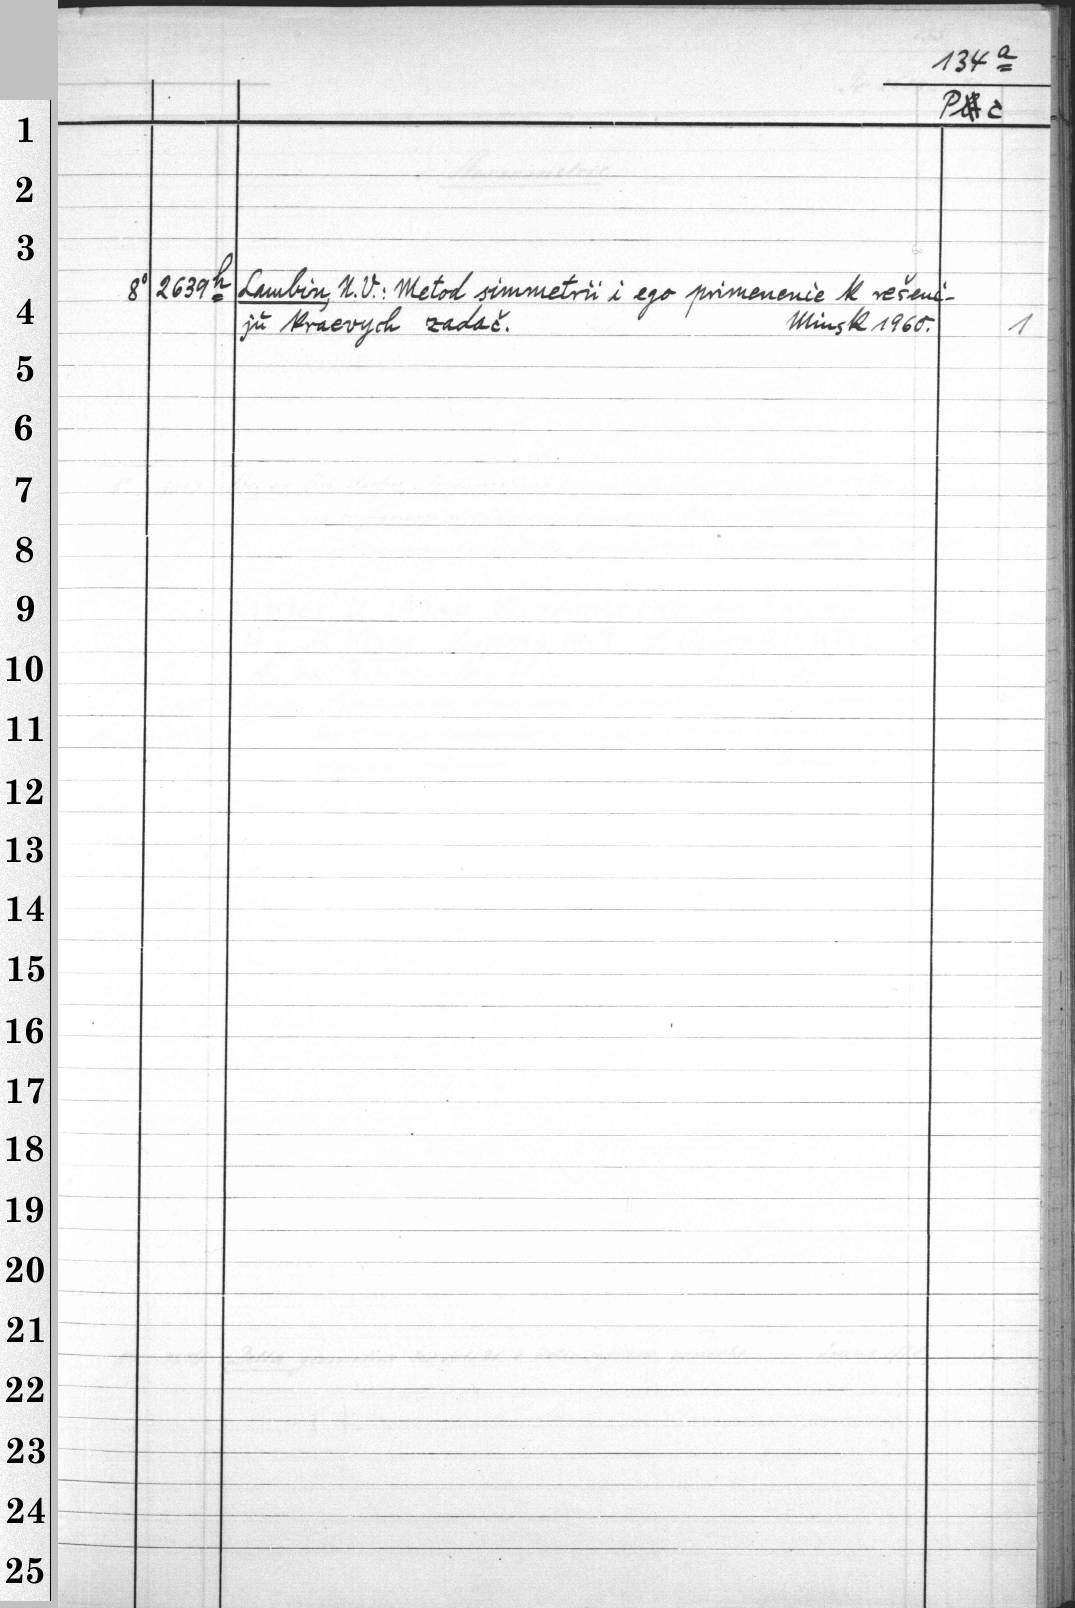 134 a
P c
1
2
3
8° 2639 h Lambin, N.V.: Metod simmetrii i ego primenenie k rešeni-
4
jŭ kraevych zadač. Minsk 1960. 1
5
6
7
8
9
10
11
12
13
14
15
16
17
18
19
20
21
22
23
24
25